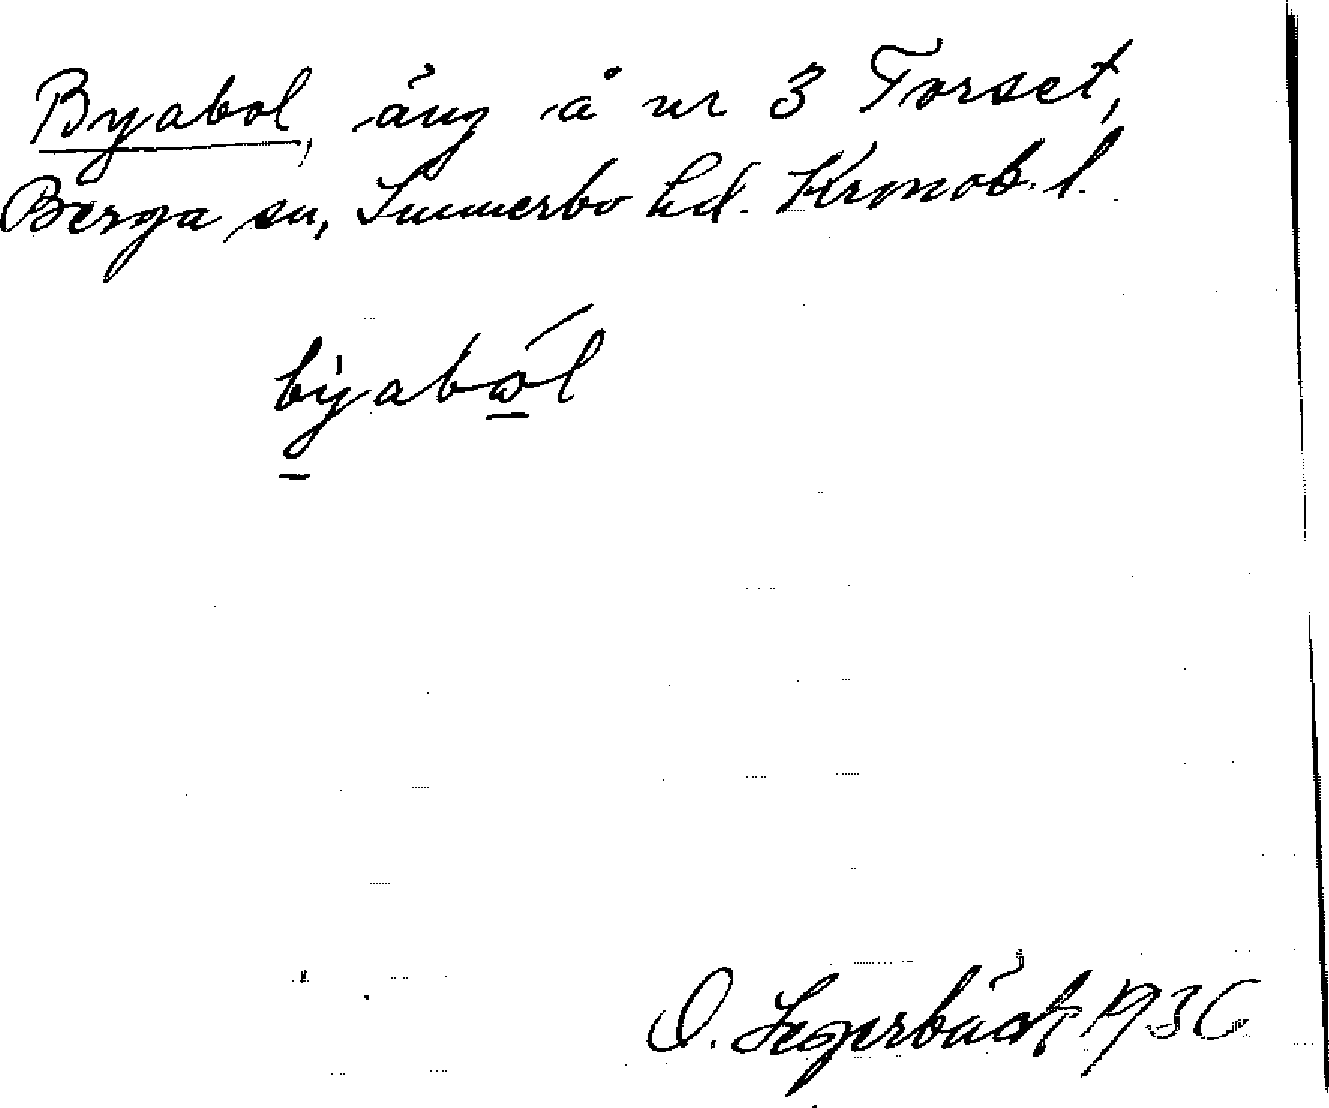 Byabol, äng å nr 3 Torset,
Berga sn, Sunnerbo hd. Kronob. l.
býabol
O. Segerbäck 1936